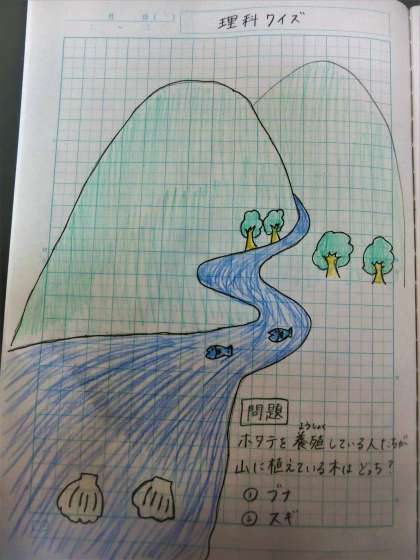 月 日( )
理科クイズ
問題
ようしょく
ホタテを養殖している人たちが
山に植えている木はどっち?
① ブナ
② スギ